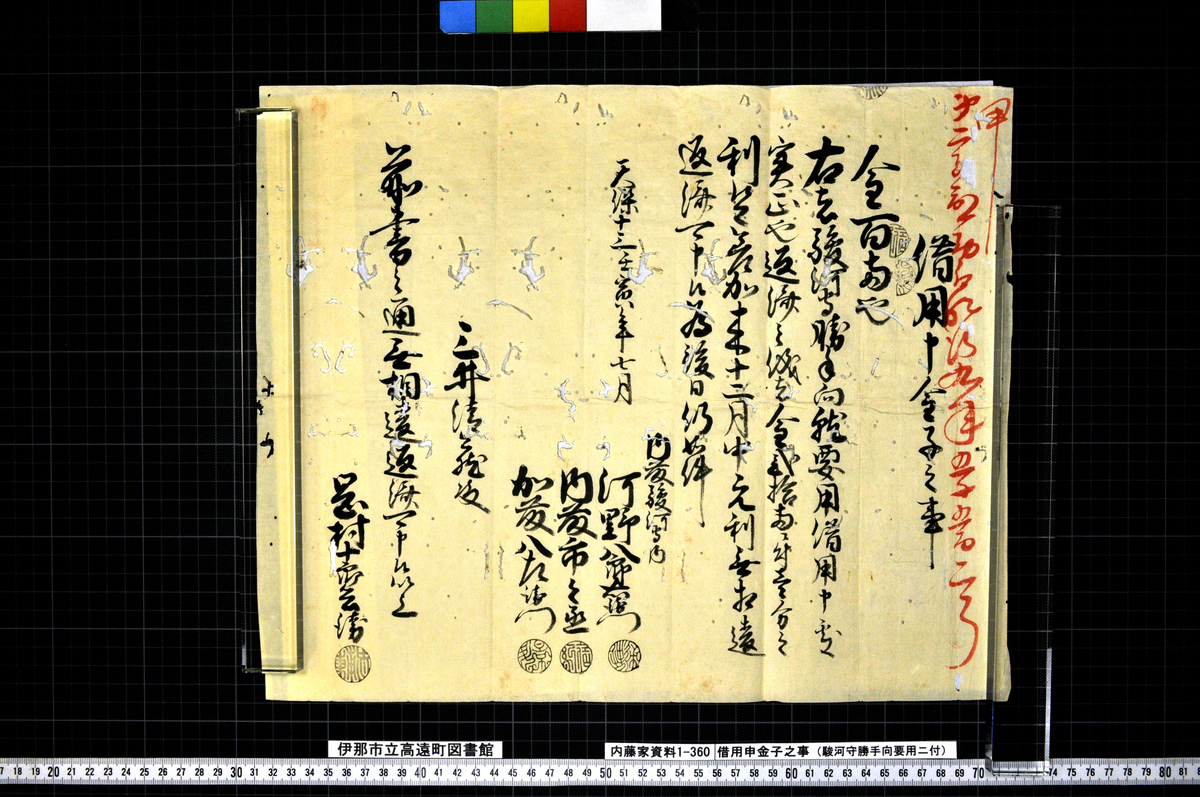 甲
借用申金子之事
金百両也
右者駿河守勝手向就要用借用申処
実正也返済之儀者金弐拾両ニ付壱分之
利足差加来十二月中元利無相違
返済可申候為後日仍如件
内藤駿河守内
天保十三壬寅年七月
河野八郎右衛門
内藤市之丞
加藤八左衛門
三井清蔵殿
前書之通無相違返済可申候以上
岡村十郎兵衛
伊那市立高遠町図書館
内藤家資料1-360 借用申金子之事（駿河守勝手向要用ニ付）